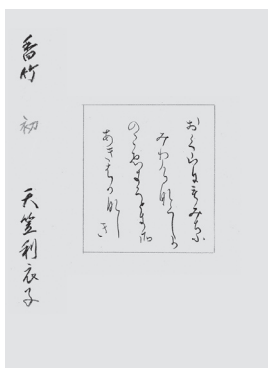 おく山にもみちふ
みわけなくしか
のこゑきくときそ
あきはかなし
き
香竹 初 天笠利衣子